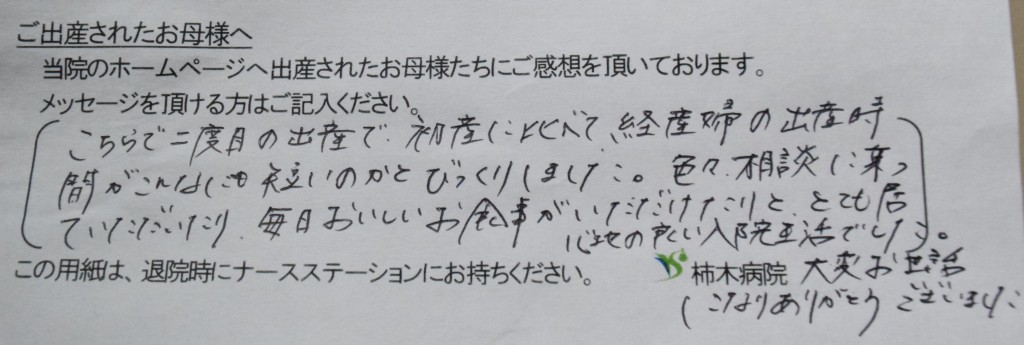 ご出産されたお母様へ
当院のホームページへ出産されたお母様たちにご感想を頂いております。
メッセージを頂ける方はご記入ください。
こちらで二度目の出産で、初産にくらべて、経産婦の出産時
間がこんなにも短いのかとびっくりしました。色々、相談に乗っ
ていただいたり、毎日おいしいお食事がいただけたりと、とても居
心地の良い入院生活でした。
この用紙は、退院時にナースステーションにお持ちください。
柿木病院
大変お世話
になりありがとうございました